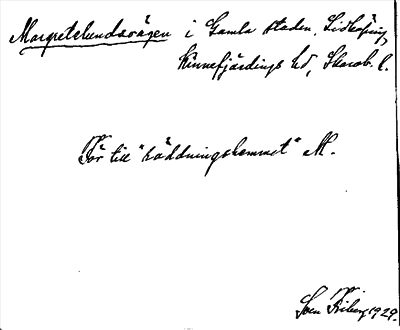 Margretelundsvägen i Gamla staden, Lidköping,
Kinnefjärdings hd, Skarab. l.
För till "räddningshemmet" M.
Sven Friberg 1929.